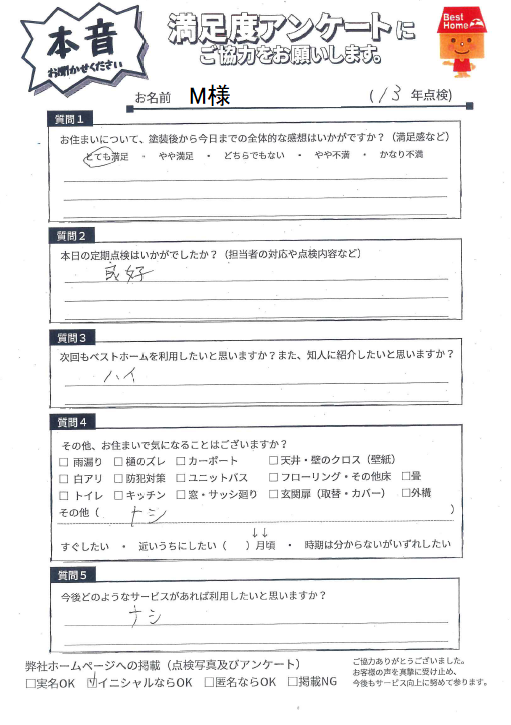 本音
お聞かせください
満足度アンケートに
ご協力をお願いします。
Best Home
お名前 M様 (13年点検)
質問1
お住まいについて、塗装後から今日までの全体的な感想はいかがですか？（満足感など）
とても満足 ・ やや満足 ・ どちらでもない ・ やや不満 ・ かなり不満
質問2
本日の定期点検はいかがでしたか？（担当者の対応や点検内容など）
良好
質問3
次回もベストホームを利用したいと思いますか？また、知人に紹介したいと思いますか？
ハイ
質問4
その他、お住まいで気になることはございますか？
□ 雨漏り □ 樋のズレ □ カーポート □ 天井・壁のクロス（壁紙）
□ 白アリ □ 防犯対策 □ ユニットバス □ フローリング・その他床 □畳
□ トイレ □ キッチン □ 窓・サッシ廻り □ 玄関扉（取替・カバー） □外構
その他（ ナシ ）
↓↓
すぐしたい ・ 近いうちにしたい（ ）月頃 ・ 時期は分からないがいずれしたい
質問5
今後どのようなサービスがあれば利用したいと思いますか？
ナシ
弊社ホームページへの掲載（点検写真及びアンケート）
□実名OK ☑イニシャルならOK □匿名ならOK □掲載NG
ご協力ありがとうございました。
お客様の声を真摯に受け止め、
今後もサービス向上に努めて参ります。